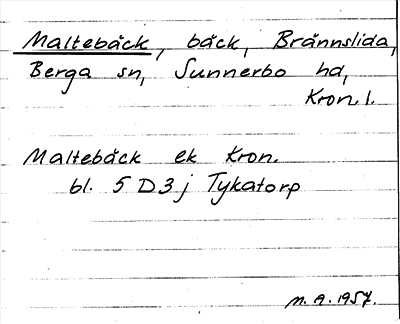 Maltebäck, bäck, Brännslida,
Berga sn, Sunnerbo hd,
Kron. l.
Maltebäck ek Kron.
bl. 5 D 3 j Tykatorp
M. A. 1957.